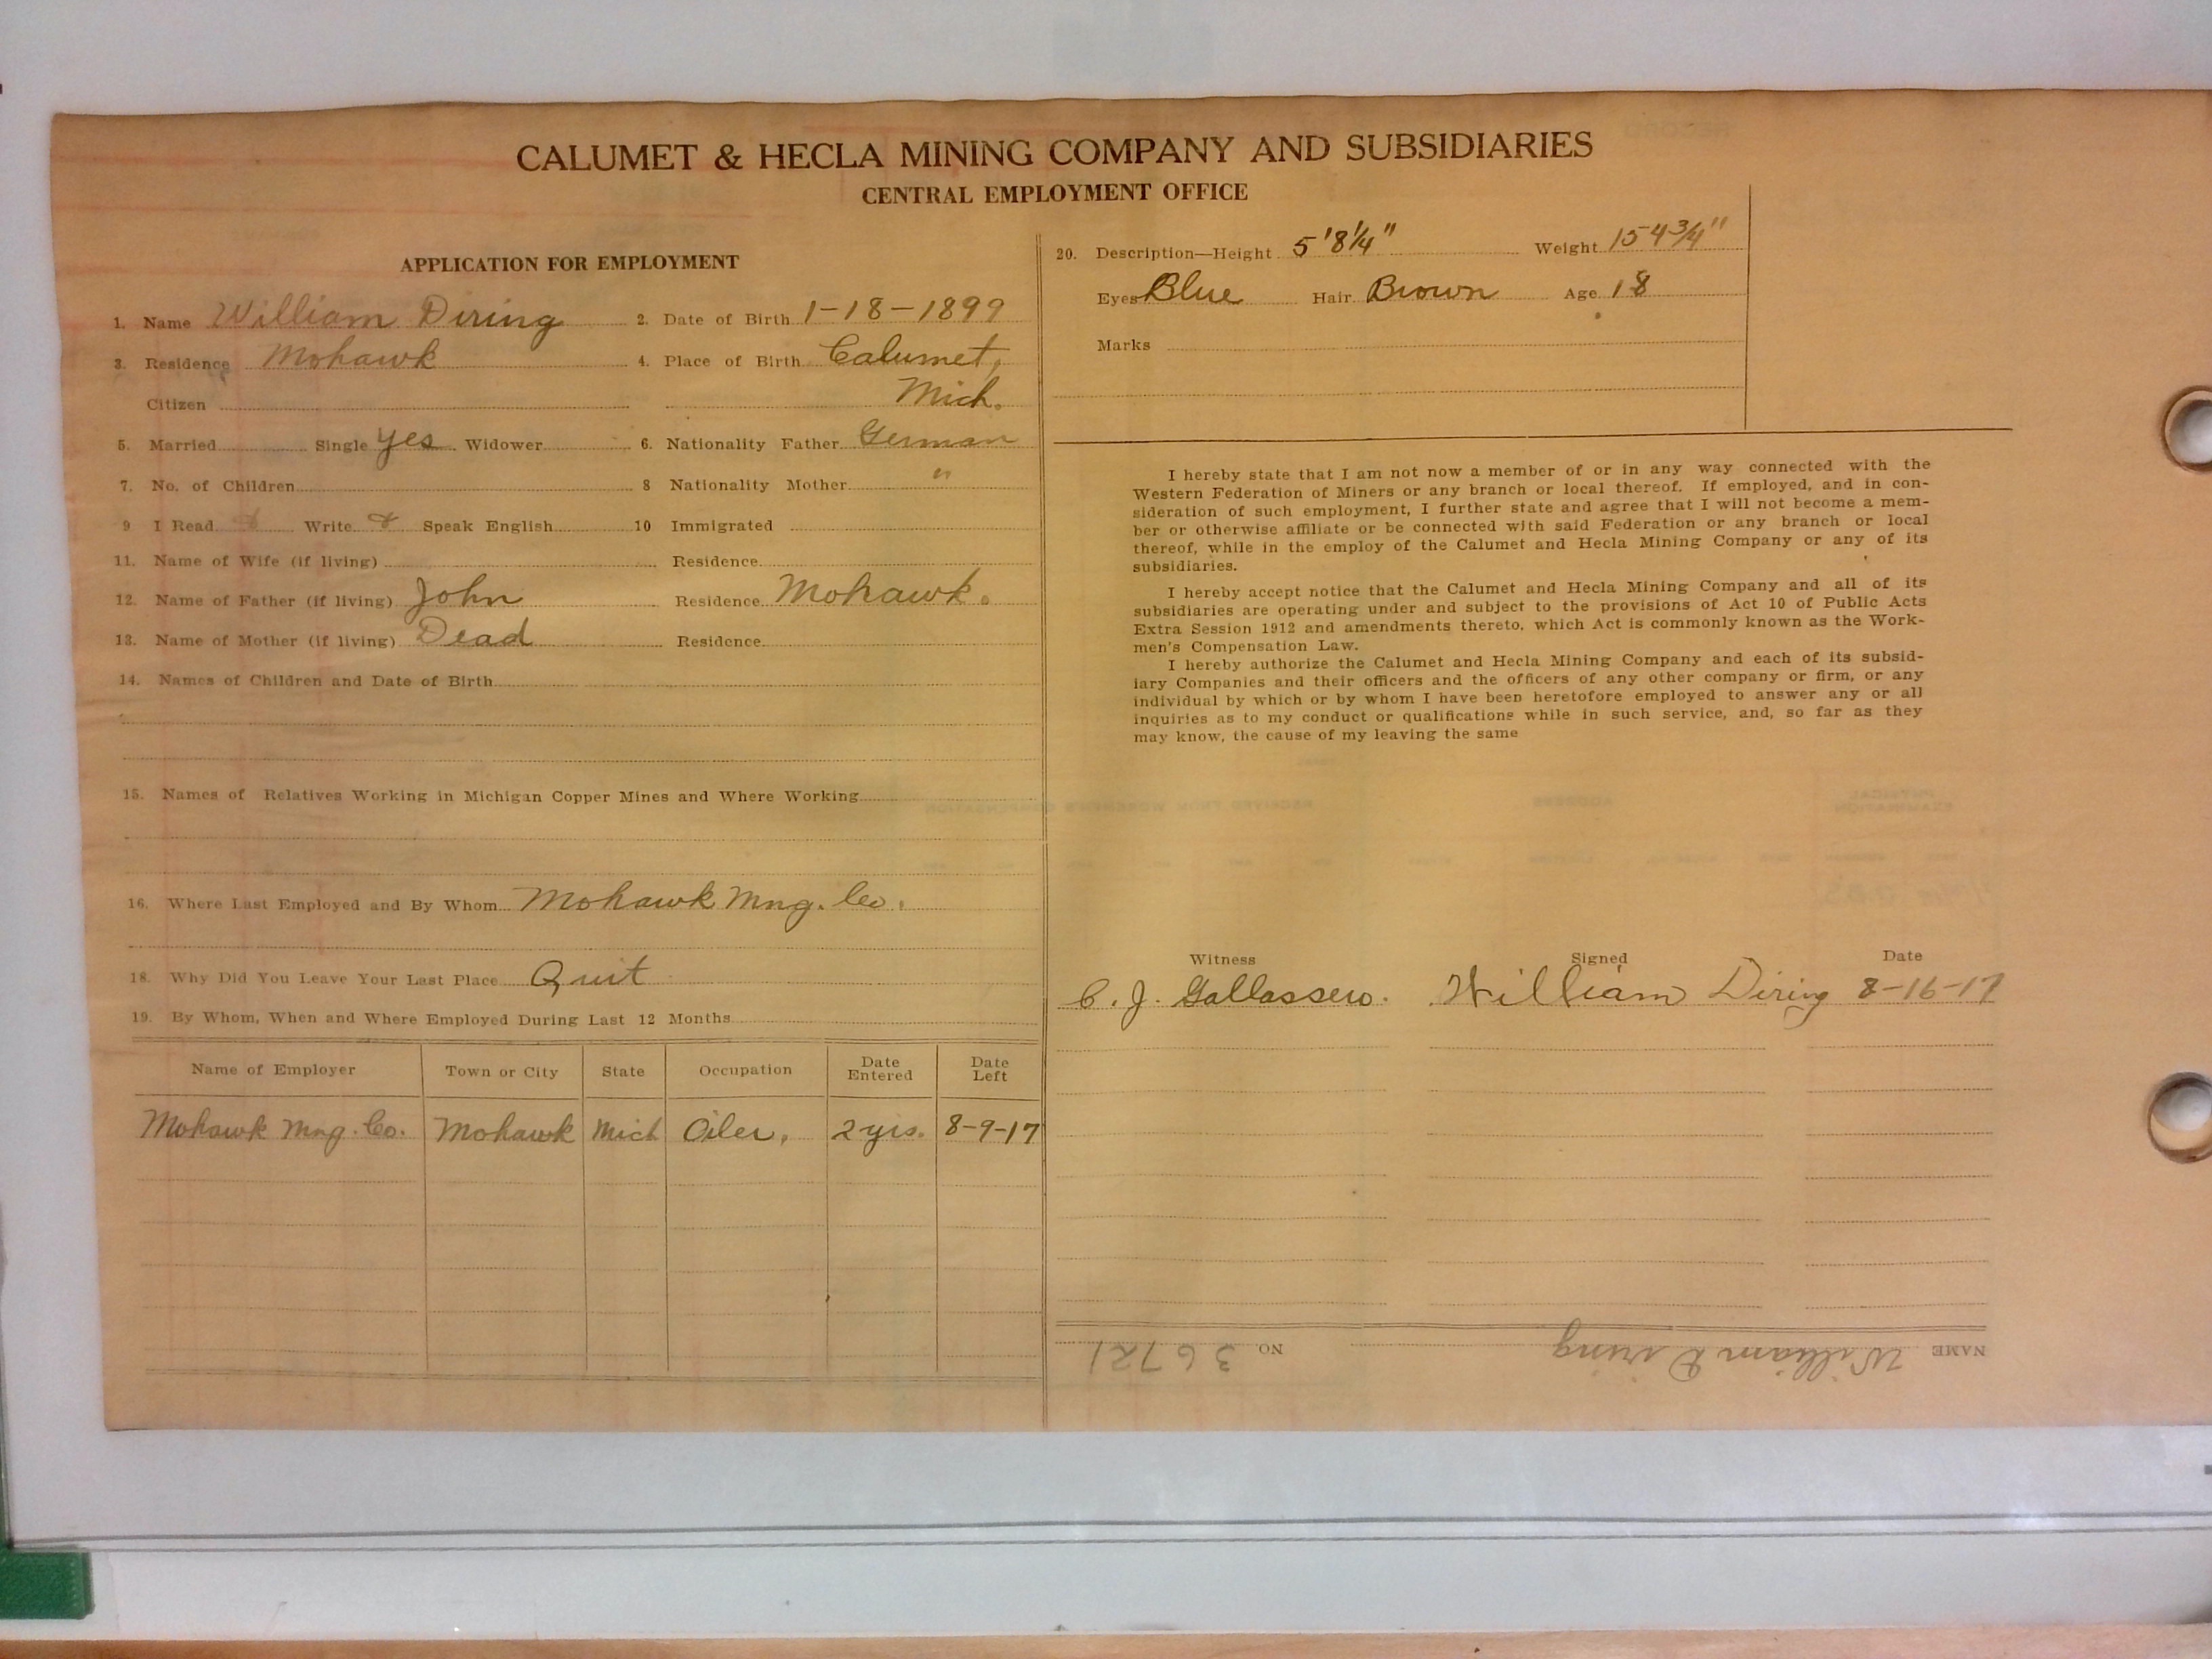 CALUMET & HECLA MINING COMPANY AND SUBSIDIARIES
CENTRAL EMPLOYMENT OFFICE
APPLICATION FOR EMPLOYMENT
1. Name William Diring 2. Date of Birth 1-18-1899
3. Residence Mohawk 4. Place of Birth Calumet,
Citizen Mich.
5. Married Single yes Widower 6. Nationality Father German
7. No. of Children 8 Nationality Mother "
9 I Read Write Speak English 10 Immigrated
11. Name of Wife (if living) Residence
12. Name of Father (if living) John Residence Mohawk.
13. Name of Mother (if living) Dead Residence
14. Names of Children and Date of Birth
15. Names of Relatives Working in Michigan Copper Mines and Where Working
16. Where Last Employed and By Whom Mohawk Mng. Co.
18. Why Did You Leave Your Last Place Quit
19. By Whom, When and Where Employed During Last 12 Months
Name of Employer Town or City State Occupation Date Entered Date Left
Mohawk Mng. Co. Mohawk Mich Oiler, 2 yrs. 8-9-17
20. Description—Height 5'8 1/4" Weight 154 3/4"
Eyes Blue Hair Brown Age 18
Marks
I hereby state that I am not now a member of or in any way connected with the
Western Federation of Miners or any branch or local thereof. If employed, and in con-
sideration of such employment, I further state and agree that I will not become a mem-
ber or otherwise affiliate or be connected with said Federation or any branch or local
thereof, while in the employ of the Calumet and Hecla Mining Company or any of its
subsidiaries.
I hereby accept notice that the Calumet and Hecla Mining Company and all of its
subsidiaries are operating under and subject to the provisions of Act 10 of Public Acts
Extra Session 1912 and amendments thereto, which Act is commonly known as the Work-
men's Compensation Law.
I hereby authorize the Calumet and Hecla Mining Company and each of its subsid-
iary Companies and their officers and the officers of any other company or firm, or any
individual by which or by whom I have been heretofore employed to answer any or all
inquiries as to my conduct or qualifications while in such service, and, so far as they
may know, the cause of my leaving the same
Witness Signed Date
C. J. William Diring 8-16-17
NAME William Diring NO 36721